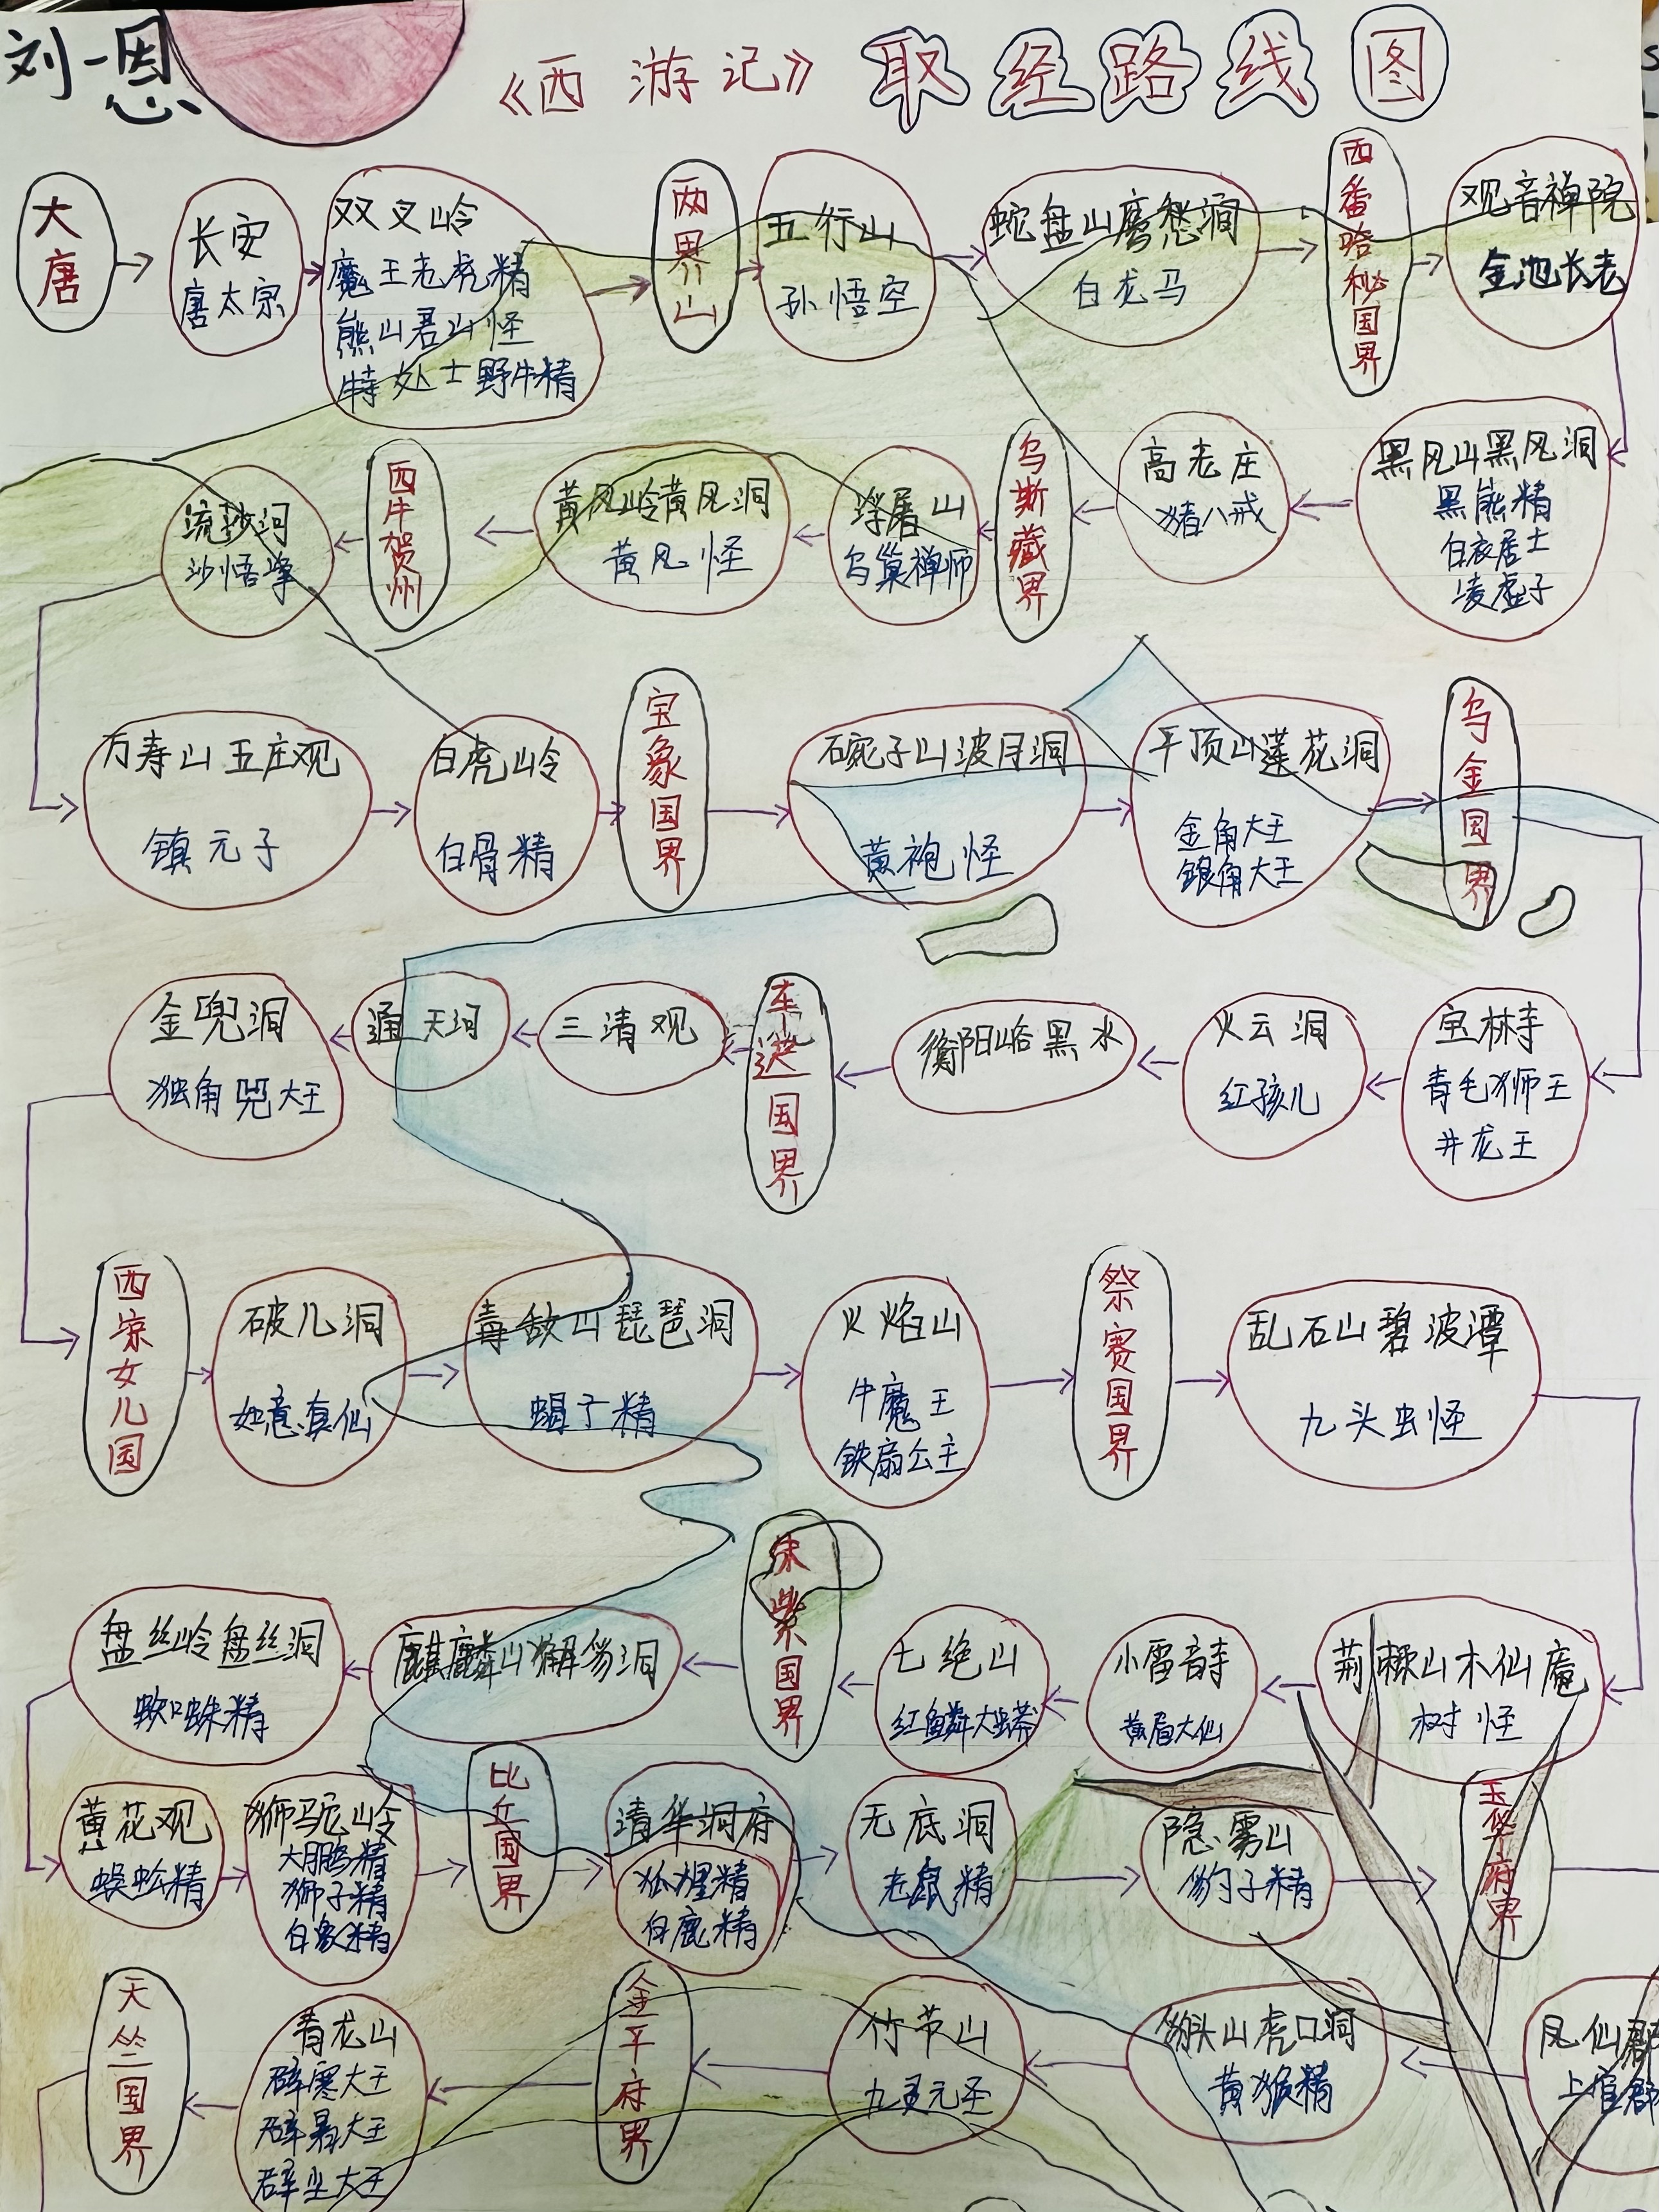 刘一恩
《西游记》取经路线图
大唐
长安
唐太宗
双叉岭
魔王老虎精
熊山君山怪
特处士野牛精
两界山
五行山
孙悟空
蛇盘山鹰愁涧
白龙马
西番哈秘国界
观音禅院
金池长老
黑风山黑风洞
黑熊精
白衣居士
凌虚子
高老庄
猪八戒
乌斯藏界
浮屠山
乌巢禅师
黄风岭黄风洞
黄风怪
西牛贺州
流沙河
沙悟净
万寿山五庄观
镇元子
白虎岭
白骨精
宝象国界
碗子山波月洞
黄袍怪
平顶山莲花洞
金角大王
银角大王
乌金国界
宝林寺
青毛狮王
井龙王
火云洞
红孩儿
衡阳峪黑水
车迟国界
三清观
通天河
金兜洞
独角兕大王
西凉女儿国
破儿洞
如意真仙
毒敌山琵琶洞
蝎子精
火焰山
牛魔王
铁扇公主
祭赛国界
乱石山碧波潭
九头虫怪
荆棘山木仙庵
树怪
小雷音寺
黄眉大仙
七绝山
红鳞大蟒
朱紫国界
麒麟山獬豸洞
盘丝岭盘丝洞
蜘蛛精
黄花观
蜈蚣精
狮驼岭
大鹏精
狮子精
白象精
比丘国界
清华洞府
狐狸精
白鹿精
无底洞
老鼠精
隐雾山
豹子精
玉华府界
凤仙郡
上官郡
豹头山虎口洞
黄猴精
竹节山
九灵元圣
金平府界
青龙山
辟寒大王
辟暑大王
辟尘大王
天竺国界